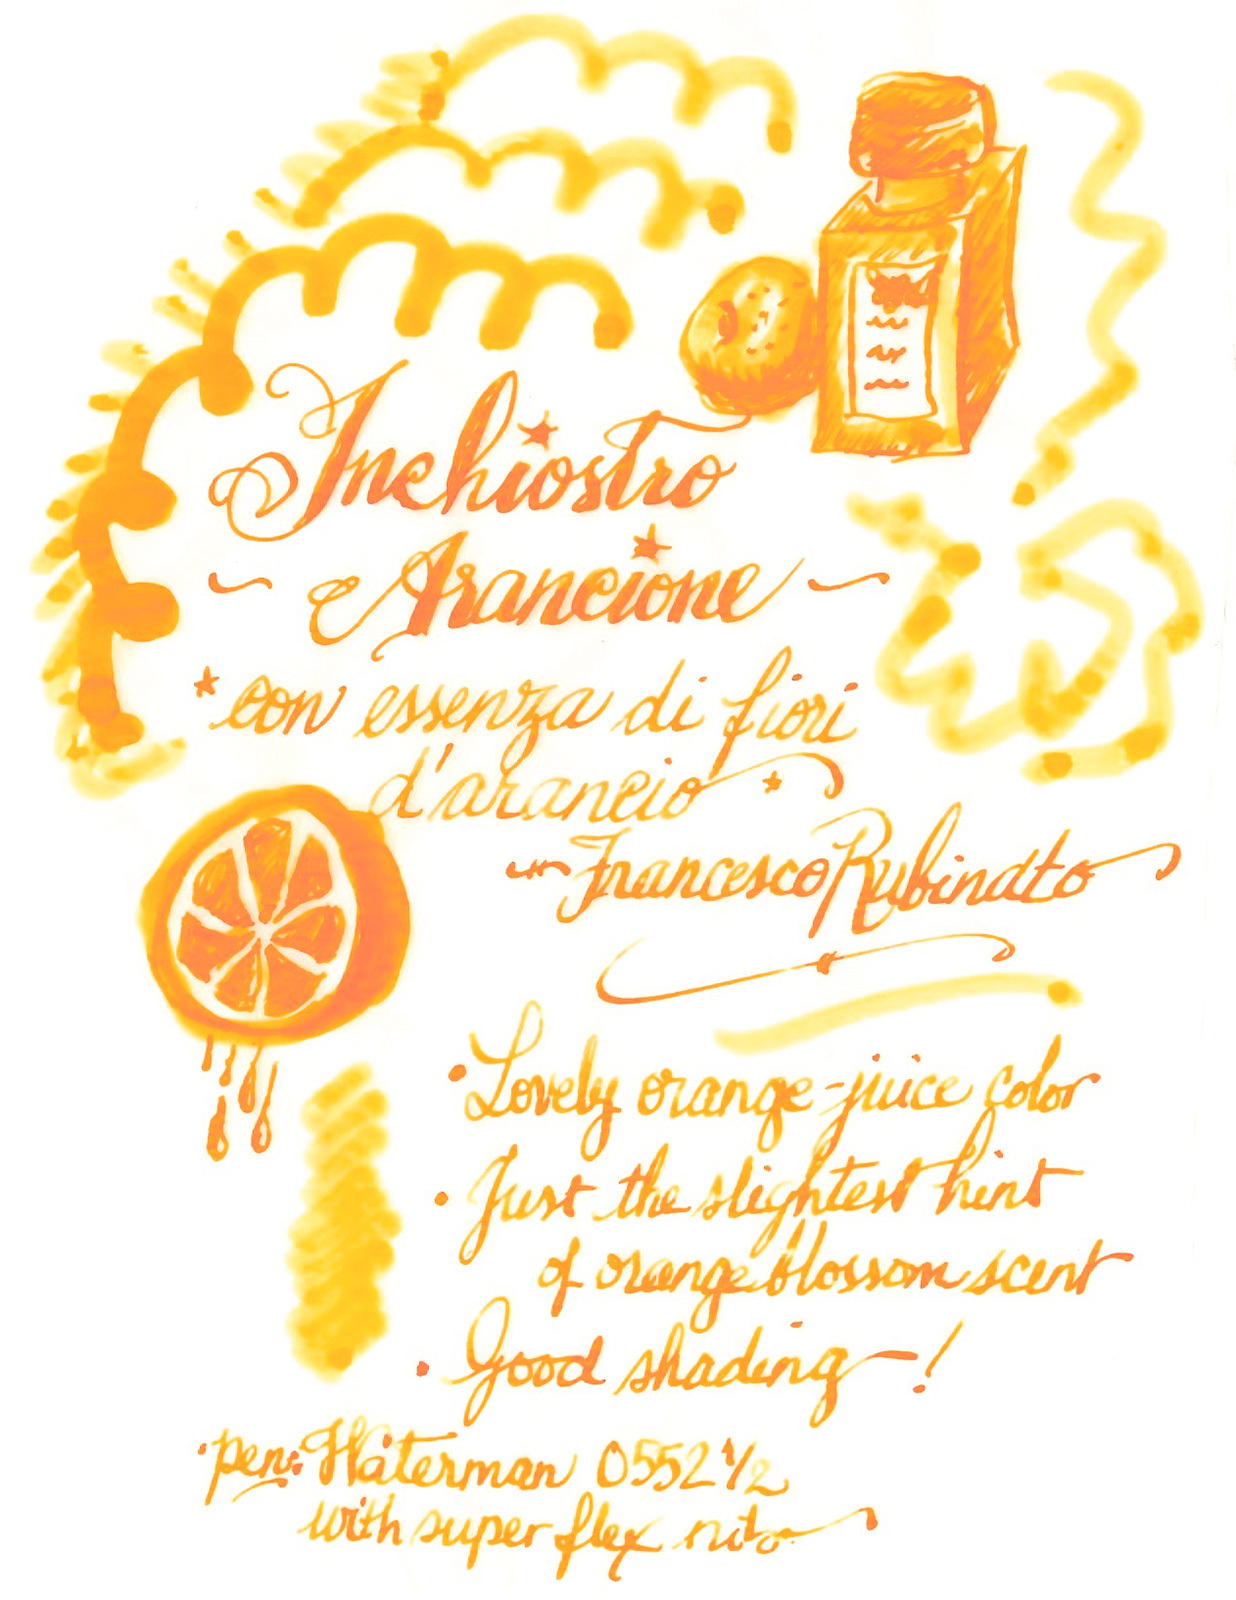 Inchiostro
~ Arancione ~
*con essenza di fiori
d'arancio*
~Francesco Rubinato
• Lovely orange-juice color
• Just the slightest hint
of orange blossom scent
• Good shading-!
• pen: Waterman 0552 1/2
with super flex nib